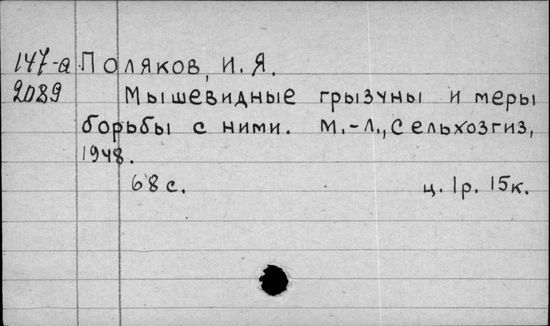 147-а Поляков, И. Я.
2089 Мышевидные грызуны и меры
борьбы с ними. М.-Л., Сельхозгиз,
1948.
68 с. ц. 1р. 15к.